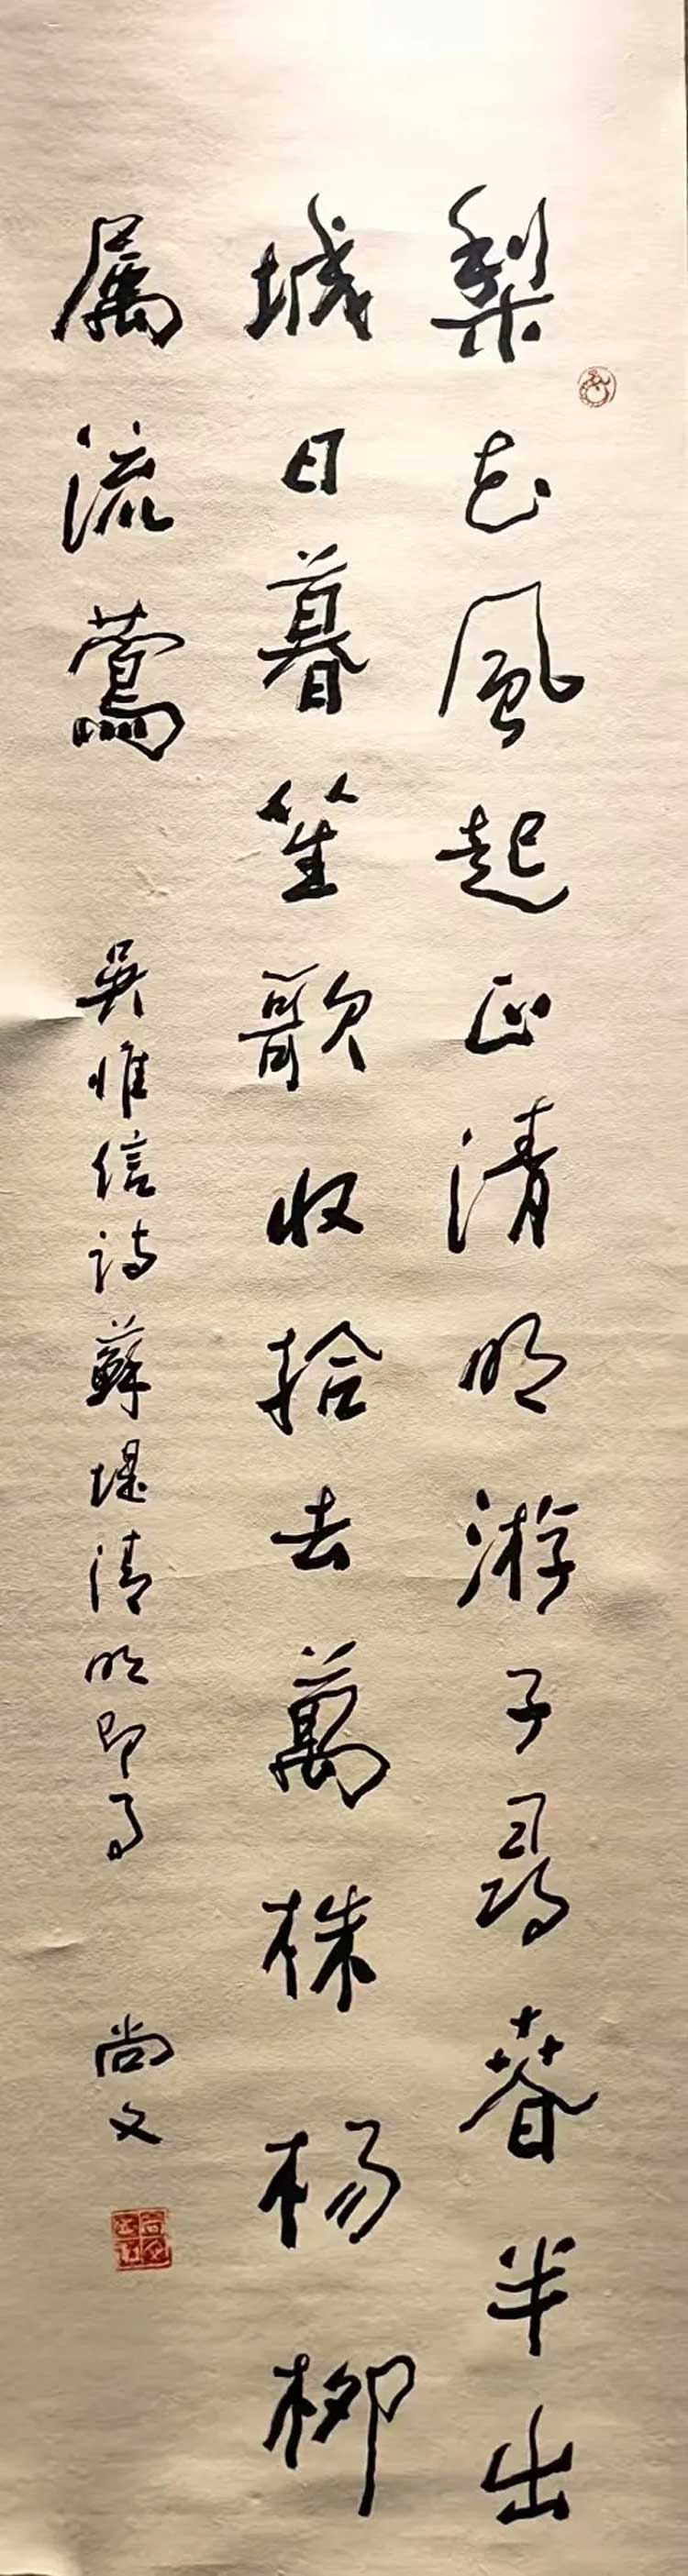 梨花風起正清明游子尋春半出
城日暮笙歌收拾去萬株楊柳
属流鶯 吴惟信詩蘇堤清明即事 尚文